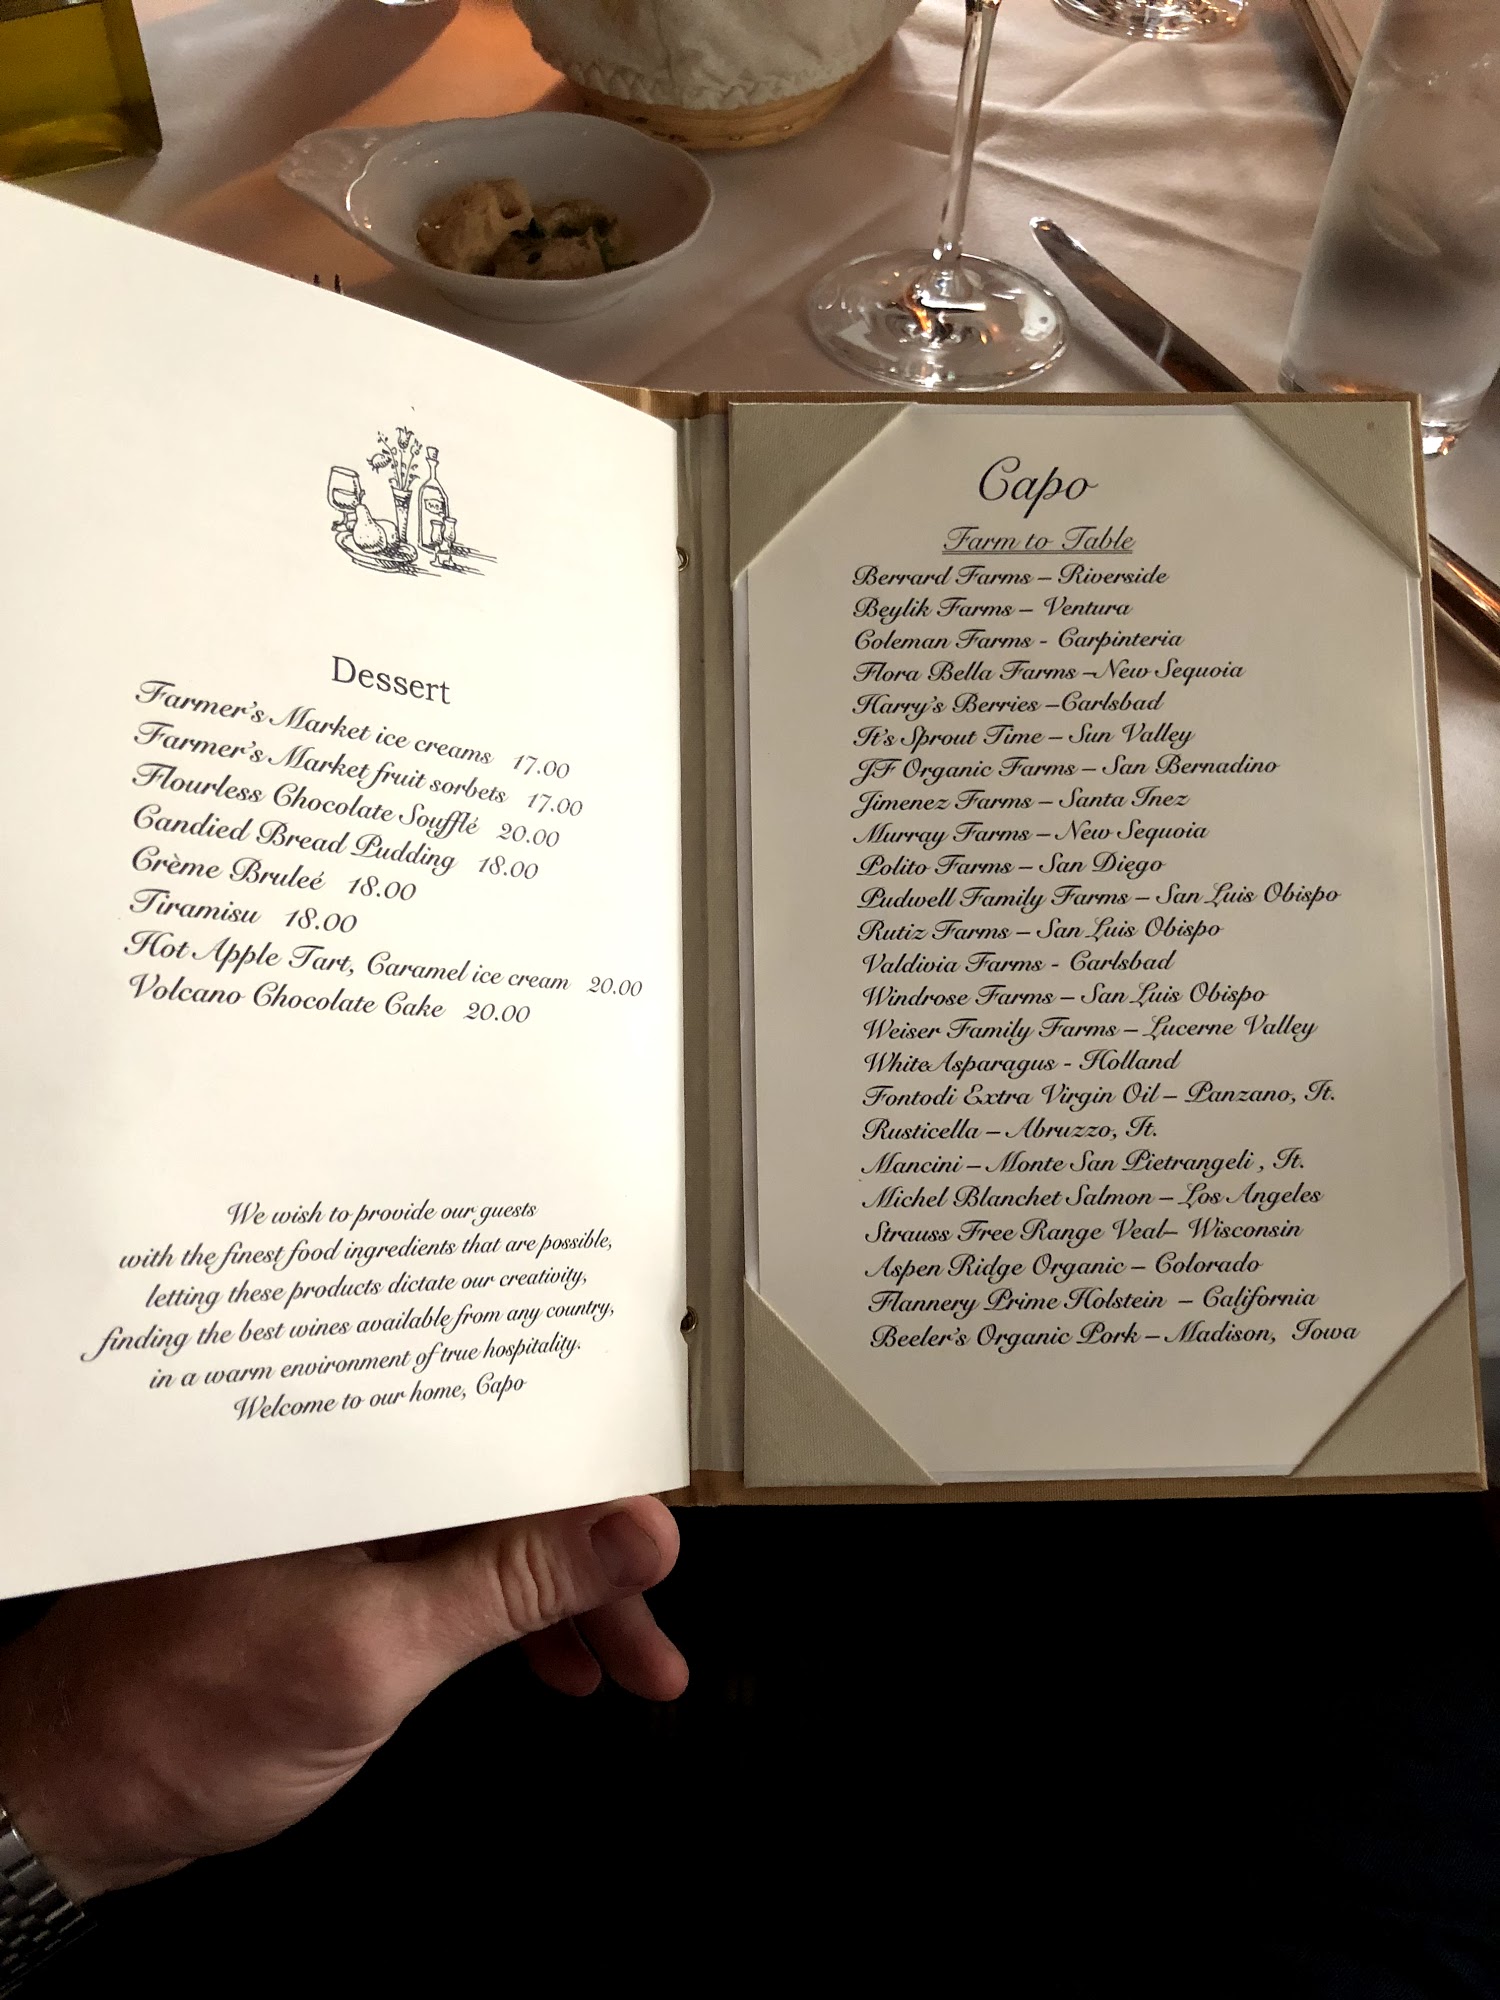 Dessert
Farmer's Market ice creams 17.00
Farmer's Market fruit sorbets 17.00
Flourless Chocolate Soufflé 20.00
Candied Bread Pudding 18.00
Crème Bruleé 18.00
Tiramisu 18.00
Hot Apple Tart, Caramel ice cream 20.00
Volcano Chocolate Cake 20.00
We wish to provide our guests
with the finest food ingredients that are possible,
letting these products dictate our creativity,
finding the best wines available from any country,
in a warm environment of true hospitality.
Welcome to our home, Capo
Capo
Farm to Table
Berrard Farms – Riverside
Beylik Farms – Ventura
Coleman Farms - Carpinteria
Flora Bella Farms –New Sequoia
Harry's Berries –Carlsbad
It's Sprout Time – Sun Valley
JF Organic Farms – San Bernadino
Jimenez Farms – Santa Inez
Murray Farms – New Sequoia
Polito Farms – San Diego
Pudwell Family Farms – San Luis Obispo
Rutiz Farms – San Luis Obispo
Valdivia Farms - Carlsbad
Windrose Farms – San Luis Obispo
Weiser Family Farms – Lucerne Valley
White Asparagus - Holland
Fontodi Extra Virgin Oil – Panzano, It.
Rusticella – Abruzzo, It.
Mancini – Monte San Pietrangeli , It.
Michel Blanchet Salmon – Los Angeles
Strauss Free Range Veal– Wisconsin
Aspen Ridge Organic – Colorado
Flannery Prime Holstein – California
Beeler's Organic Pork – Madison, Iowa